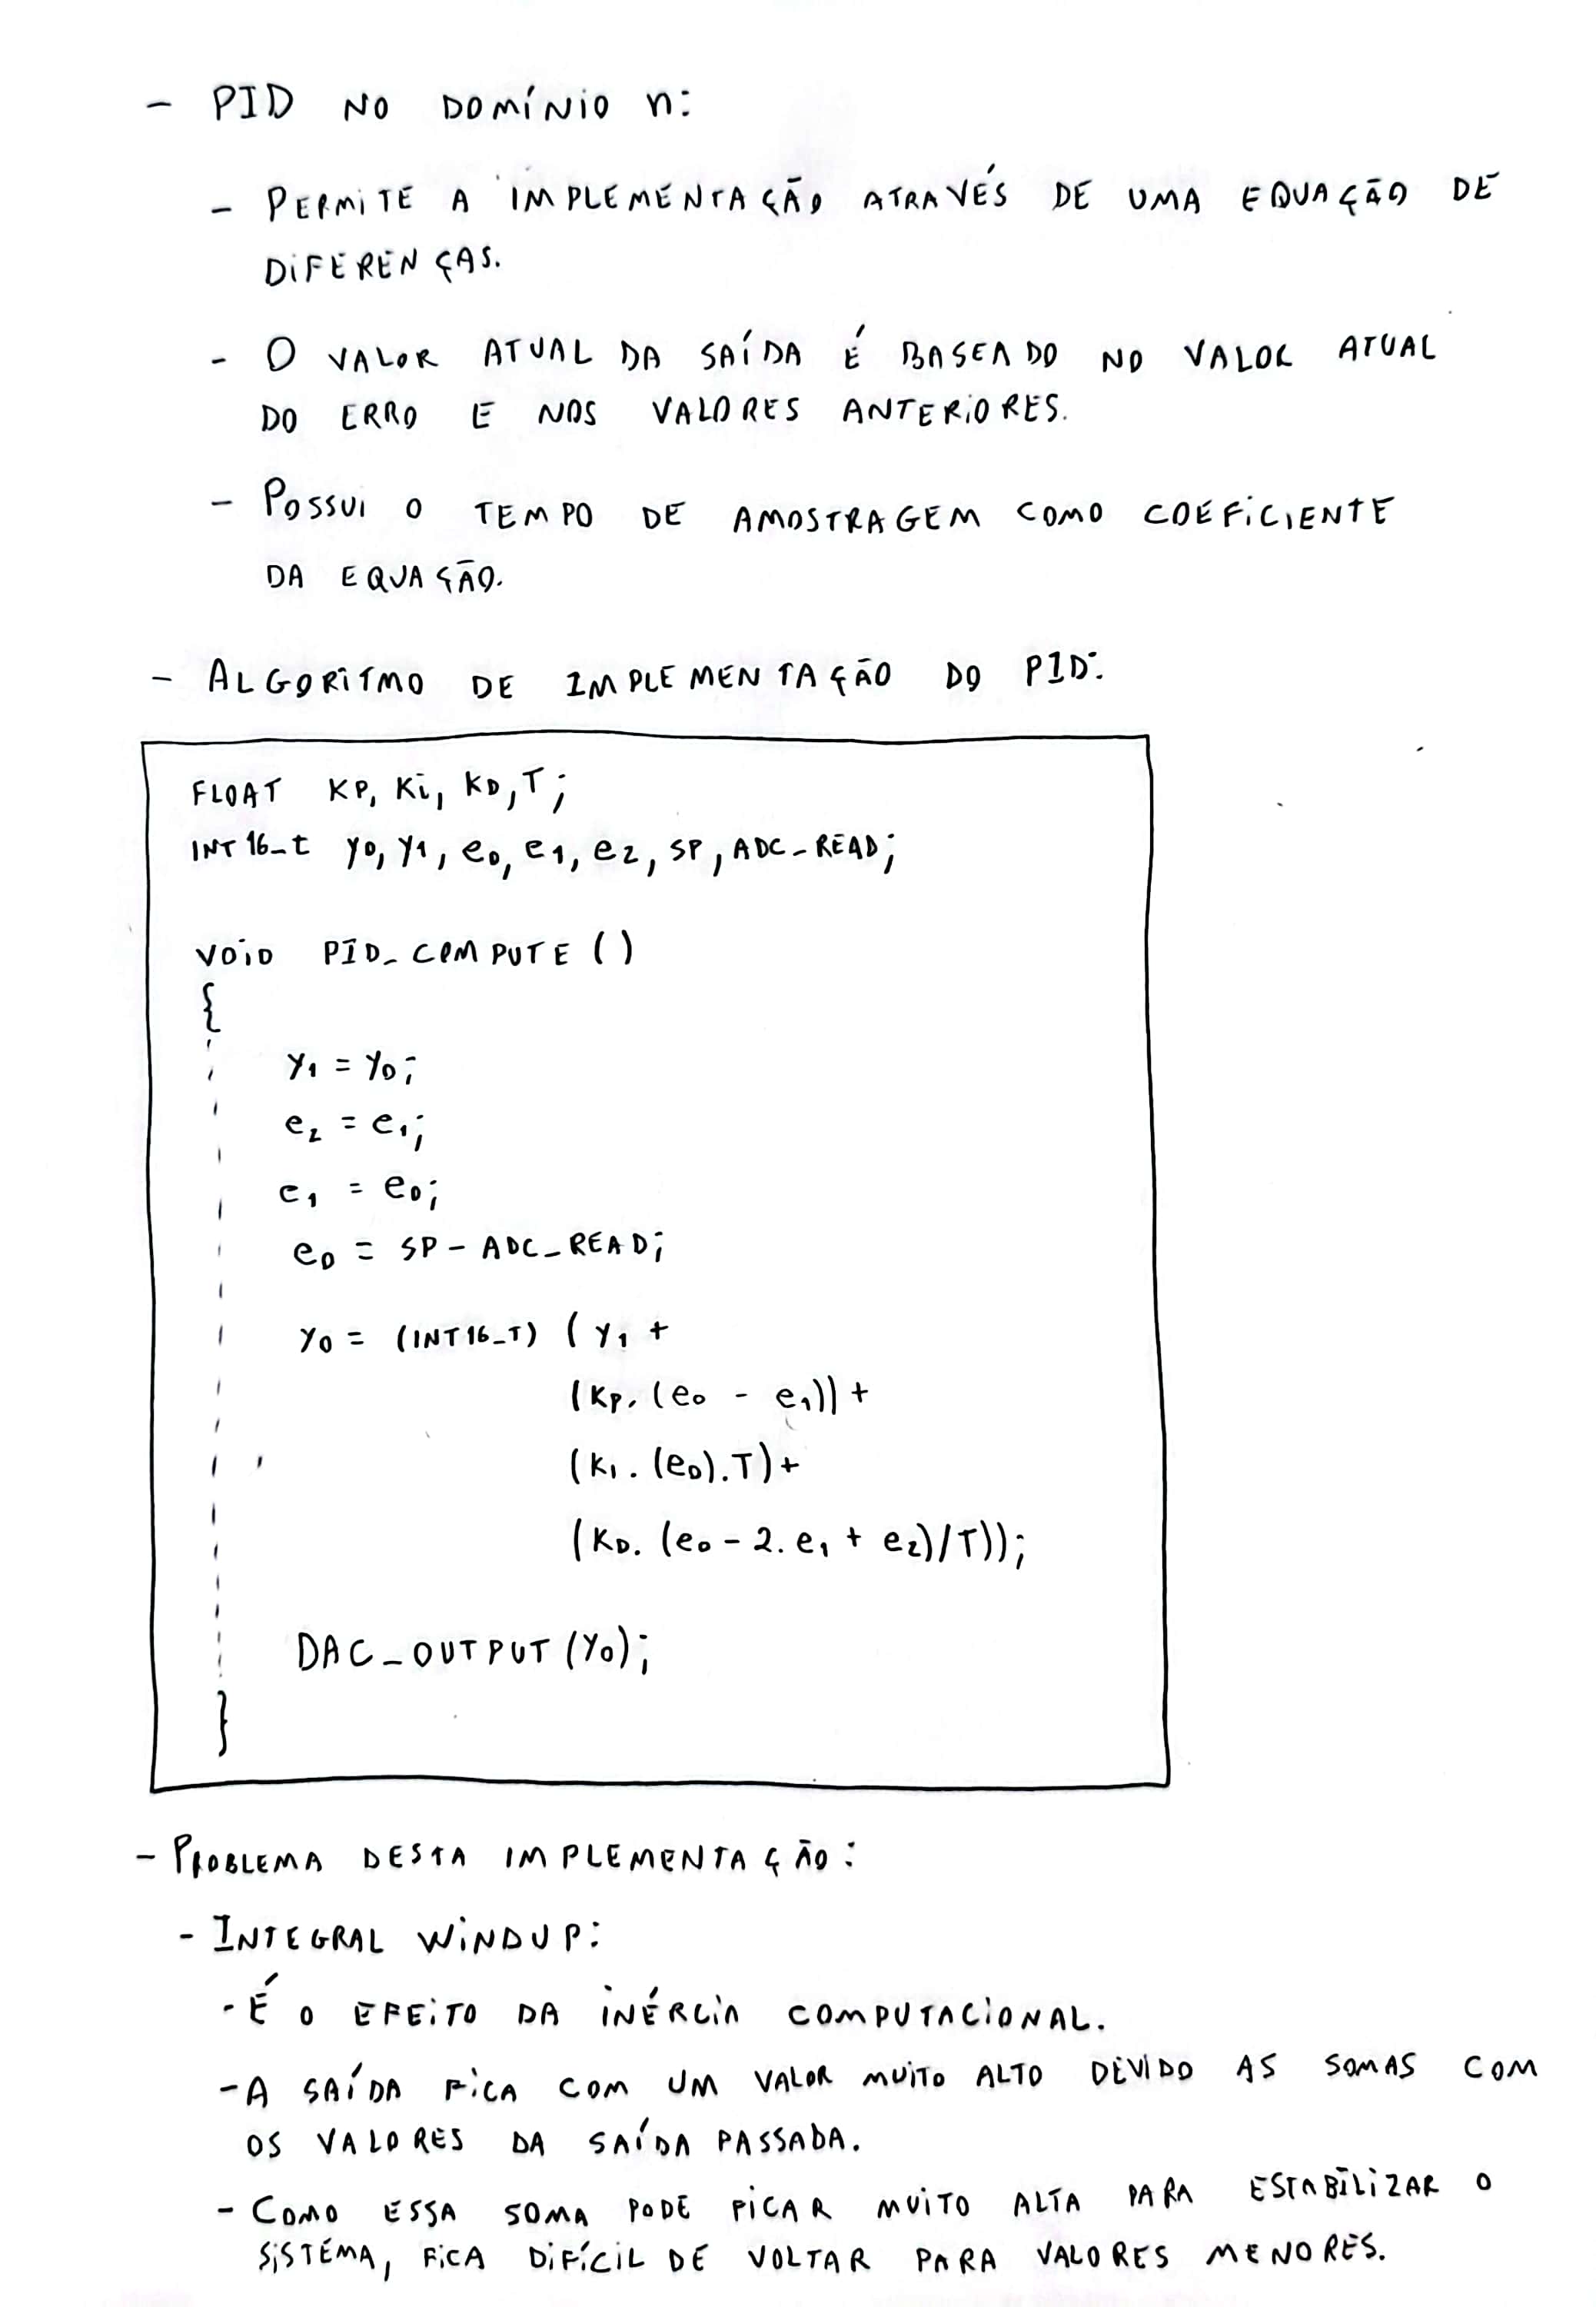 - PID NO DOMÍNIO n:
- PERMITE A IMPLEMENTAÇÃO ATRAVÉS DE UMA EQUAÇÃO DE
DIFERENÇAS.
- O VALOR ATUAL DA SAÍDA É BASEADO NO VALOR ATUAL
DO ERRO E NOS VALORES ANTERIORES.
- POSSUI O TEMPO DE AMOSTRAGEM COMO COEFICIENTE
DA EQUAÇÃO.
- ALGORITMO DE IMPLEMENTAÇÃO DO PID:
FLOAT KP, Ki, KD, T;
INT16_t y0, y1, e0, e1, e2, SP, ADC_READ;
VOID PID_COMPUTE ()
{
y1 = y0;
e2 = e1;
e1 = e0;
e0 = SP - ADC_READ;
y0 = (INT16_T) ( y1 +
(KP. (e0 - e1)) +
(KI. (e0).T) +
(KD. (e0 - 2. e1 + e2)/T));
DAC_OUTPUT (y0);
}
- PROBLEMA DESTA IMPLEMENTAÇÃO:
- INTEGRAL WINDUP:
- É O EFEITO DA INÉRCIA COMPUTACIONAL.
- A SAÍDA FICA COM UM VALOR MUITO ALTO DEVIDO AS SOMAS COM
OS VALORES DA SAÍDA PASSADA.
- COMO ESSA SOMA PODE FICAR MUITO ALTA PARA ESTABILIZAR O
SISTEMA, FICA DIFÍCIL DE VOLTAR PARA VALORES MENORES.